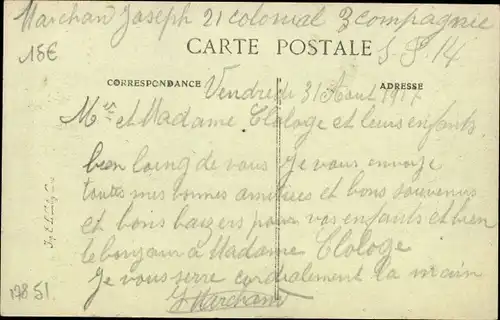 Marchan Joseph 21 colonial 3 compagnie
15€
CARTE POSTALE
S. P. 14
CORRESPONDANCE
Vendredi 31 Aout 1917
ADRESSE
Mr et Madame Clologe et leurs enfants
bien loing de vous Je vous envoye
toutes mes bonnes amitiees et bons souvenus
et bons baizers pour vos enfants et bien
le bonjour a Madame Clologe
Je vous serre cordialement la main
J Marchand
19851